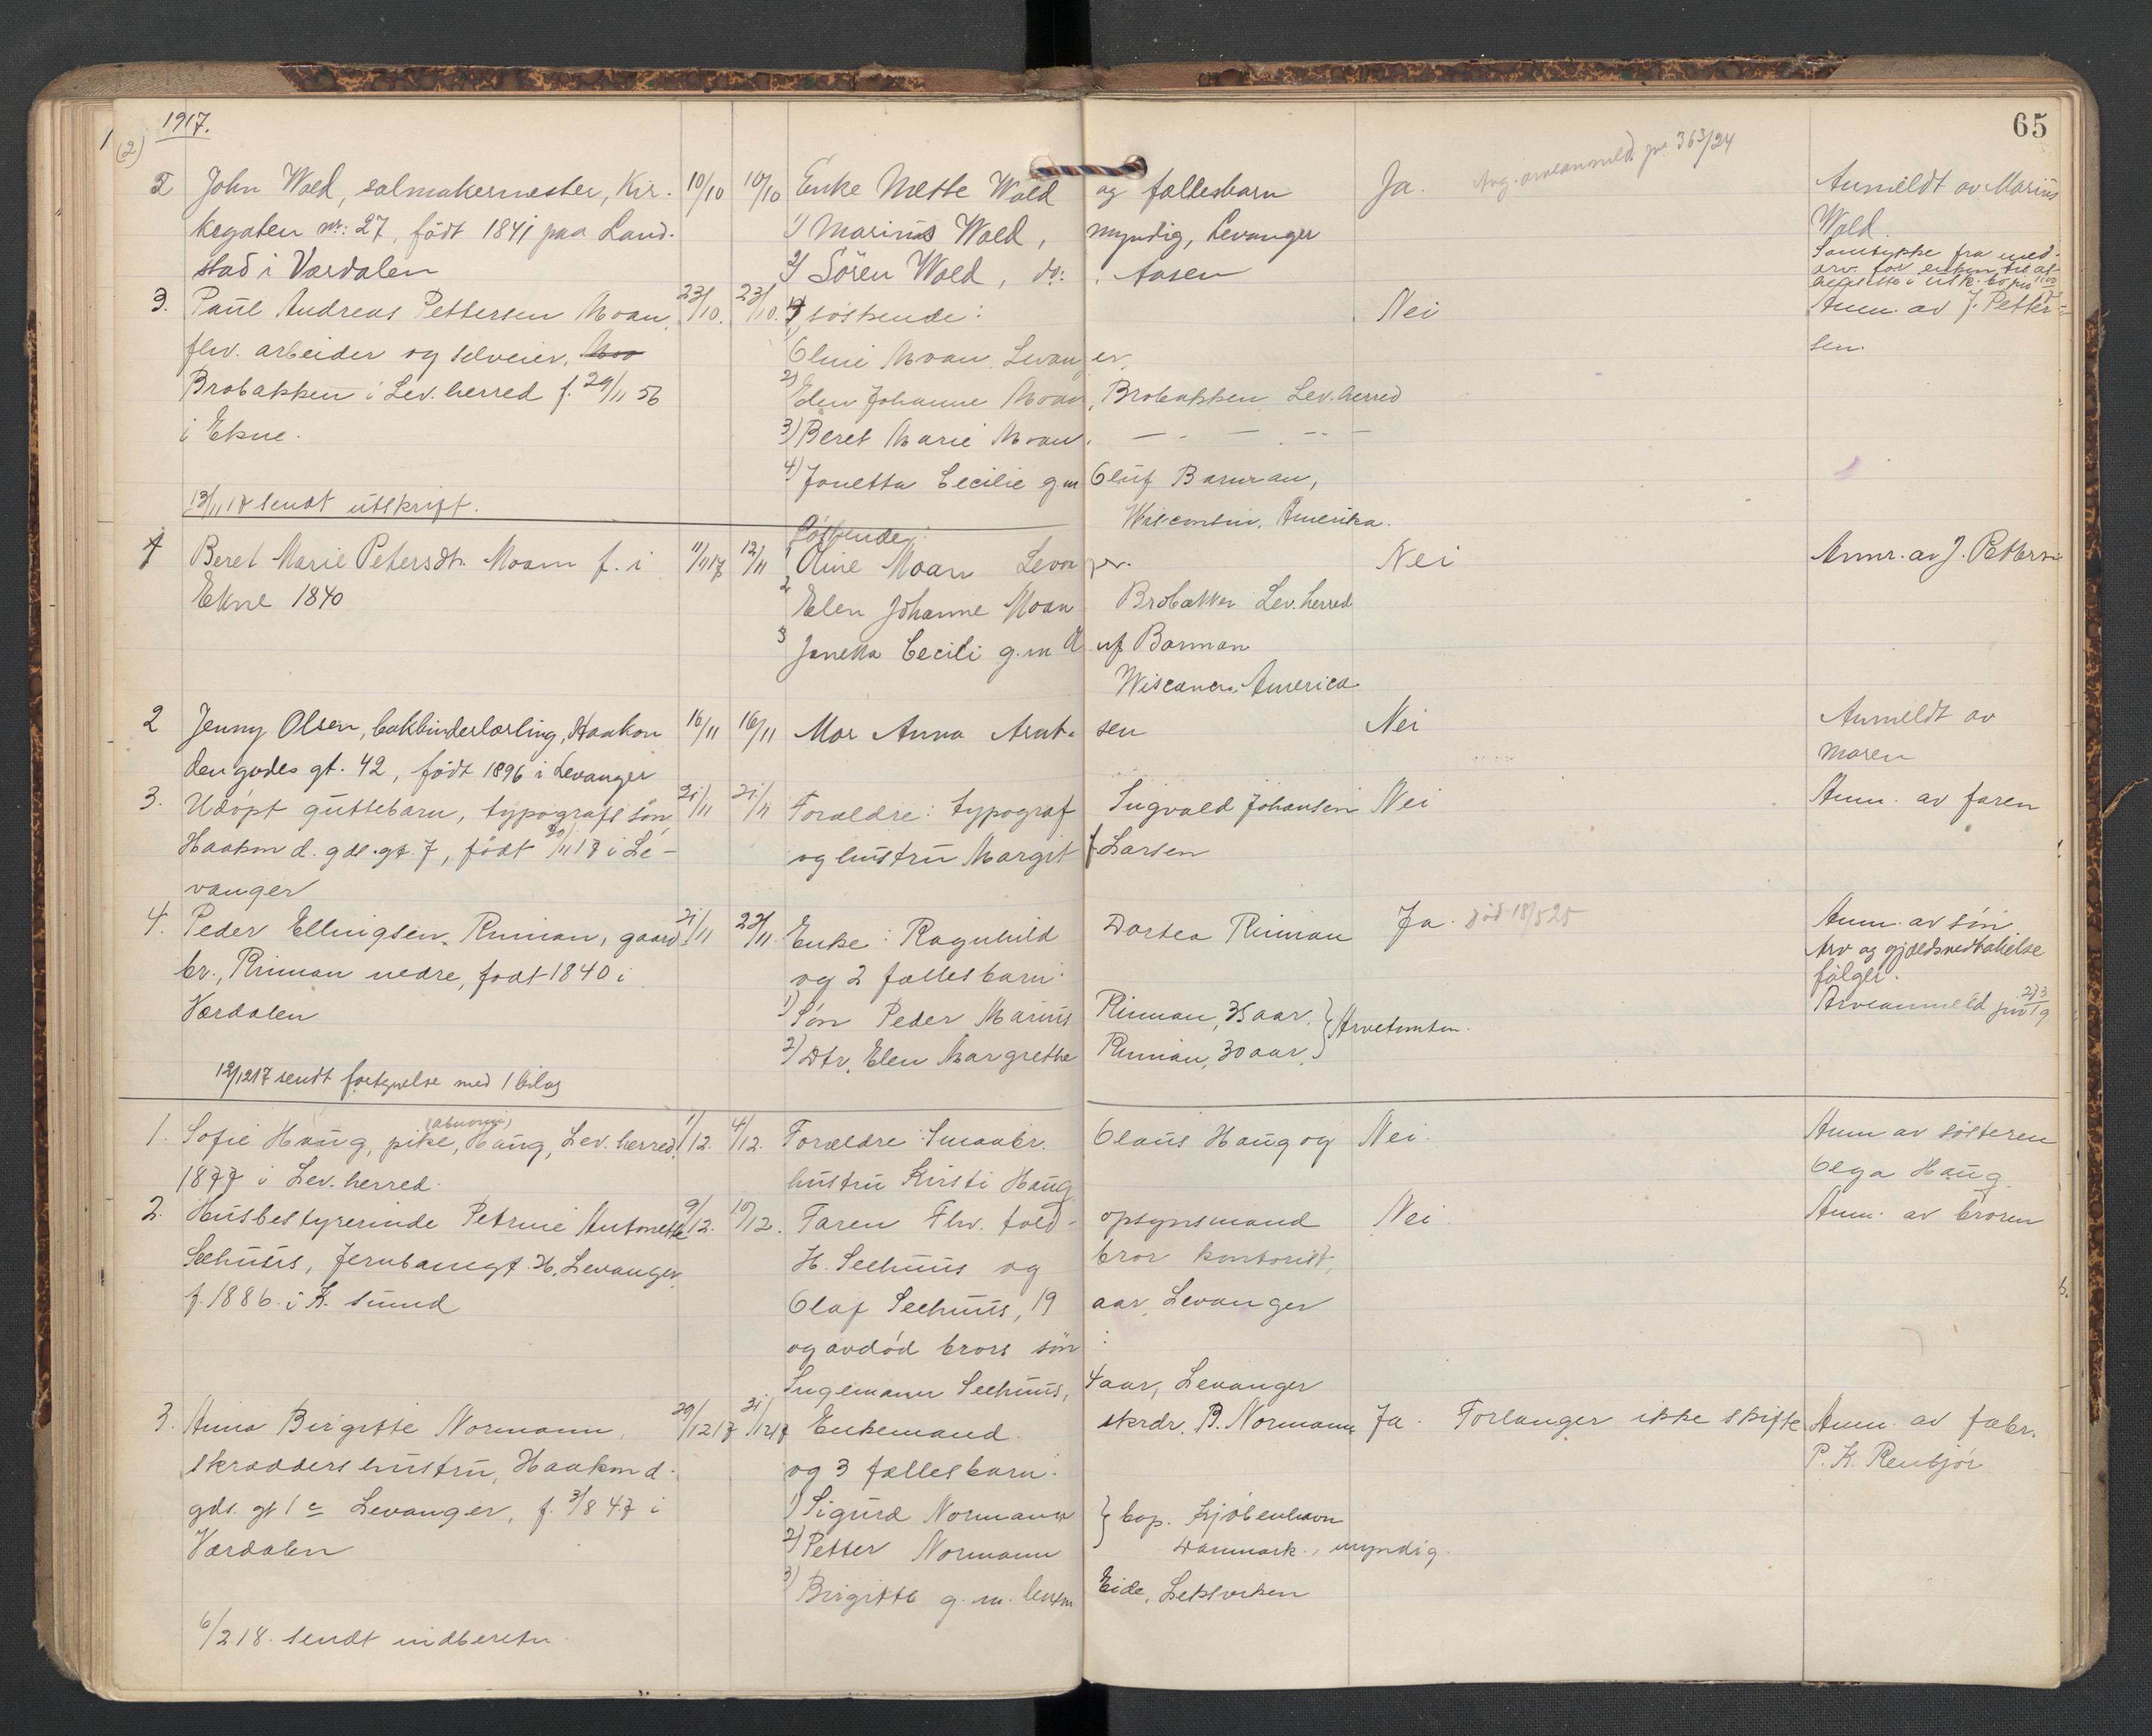 1917.
65
1 (2)
2 John Wold, salmakermester, Kir- 10/10 10/10 Enke Mette Wold og fællesbarn Ja. Avg. arveanmeld. jnr 363/24 Anmeldt av Marius
kegaten nr: 27, født 1841 paa Land- 1) Marius Wold, myndig, Levanger Wold.
stad i Værdalen 2) Sören Wold, do: . Aasen Samtykke fra med-
arv. for enken til at
3. Paul Andreas Pettersen Moan, 23/10. 23/10. 4 söskende: Nei Anm. av J. Petter-
flv. arbeider og selveier, 1) Oline Moan, Levanger, sen.
Brobakken i Lev. herred f. 29/11 56 2) Elen Johanne Moan, Brobakken, Lev. herred
i Ekne. 3) Beret Marie Moan, — - — . -- —
4) Jonetta Cecilie g.m Oluf Barman,
13/11 17 sendt utskrift. Wisconsin, Amerika.
Söskende:
1 Beret Marie Petersdtr. Moan f. i 11/11 17 12/11 1 Oline Moan Levanger. Nei Anm. av J. Petersen
Ekne 1840 2 Elen Johanne Moan Brobakken Lev. herred
3 Jonetta Cecili g.m Oluf Barman
Wiscons. America
2 Jenny Olsen, bokbinderlærling, Haakon 16/11 16/11 Mor Anna Arnt- sen Nei Anmeldt av
den godes gt. 42, født 1896 i Levanger moren
3. Udöpt guttebarn, typografs sön, 21/11 21/11 Forældre: typograf Sigvald Johansen Nei Anm. av faren
Haakon d. gdes. gt. 7, født 20/11 17 i Le- og hustru Margit f Larsen
vanger
4. Peder Ellingsen Rinnan, gaard- 21/11 22/11. Enke: Ragnhild Dortea Rinnan Ja. död 18/5 25 Anm. av sön.
br., Rinnan nedre, født 1840 i og 2 fællesbarn: Arv og gjældsvedtakelse
følger.
Værdalen 1) Sön Peder Marius Rinnan, 35 aar. } Arvetomten. Arveanmeld jnr 273/19
2) Dtr. Elen Margrethe Rinnan, 30 aar.
12/12 17 sendt fortegnelse med 1 bilag
1. Sofie Haug, pike, (abnorm) Haug, Lev. herred f. 1/12. 4/12. Forældre: Smaabr. Olaus Haug og Nei. Anm av søsteren
1877 i Lev. herred. hustru Kirsti Haug Olga Haug.
2. Husbestyrerinde Petrine Antonette 9/12. 10/12. Faren Flv. told- opsynsmand Nei Anm. av broren
Seehuus, Jernbanegt. H, Levanger, H. Seehuus og bror kontorist,
f. 1886 i K. sund Olaf Seehuus, 19 aar, Levanger
og avdød brors sön :
Ingemann Seehuus, 4 aar, Levanger
3. Anna Birgitte Normann, 29/12 17 31/12 17 Enkemand. skrdr. B. Normann Ja. Forlanger ikke skifte Anm. av fabr.
skrædders hustru, Haakon d. og 3 fællesbarn. P. K. Renbjör
gds. gt 1 c Levanger, f. 3/8 47 i 1) Sigurd Normann } bop. Kjöbenhavn
Værdalen 2) Petter Normann Danmark., myndig.
3) Birgitte g. m. lensm Eide, Leksviken
6/2 18. sendt indberetn.